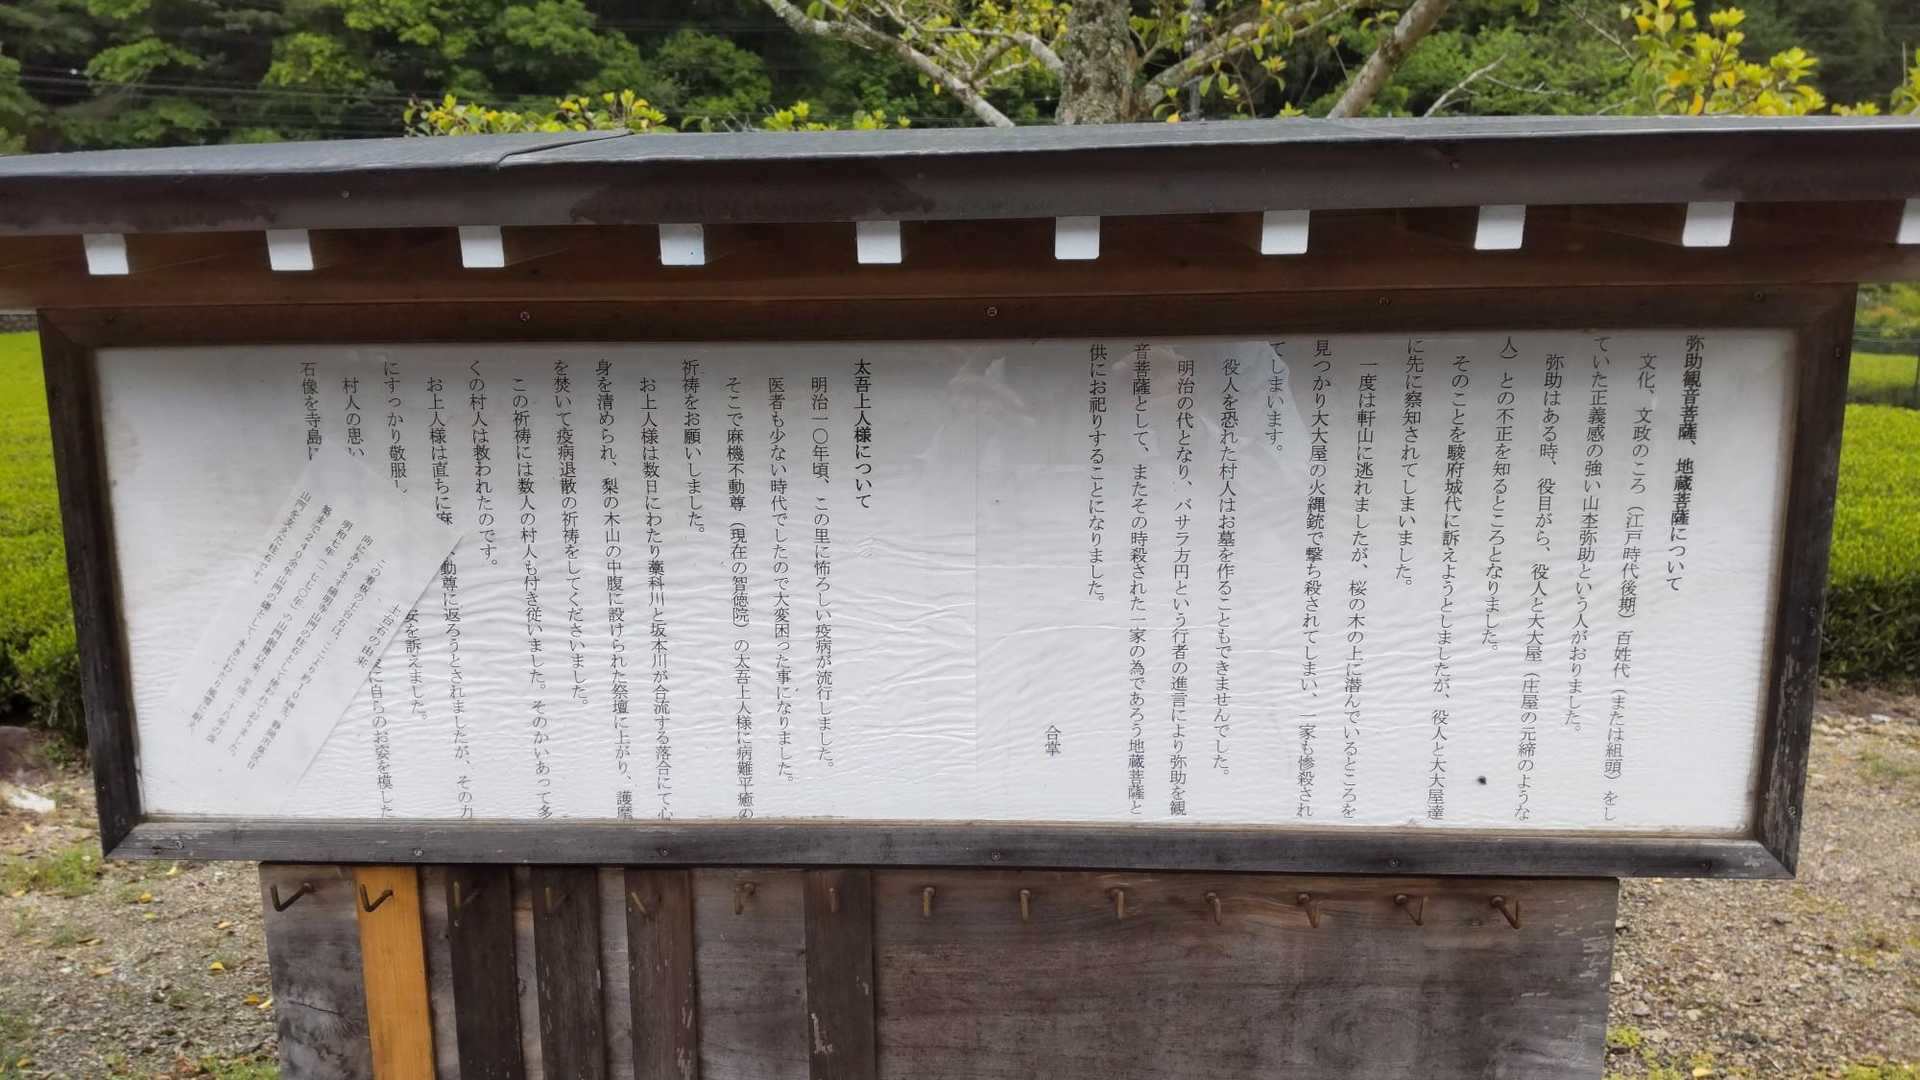 弥助観音菩薩、地蔵菩薩について
文化、文政のころ（江戸時代後期）百姓代（または組頭）をし
ていた正義感の強い山本弥助という人がおりました。
弥助はある時、役目がら、役人と大大屋（庄屋の元締のような
人）との不正を知るところとなりました。
そのことを駿府城代に訴えようとしましたが、役人と大大屋達
に先に察知されてしまいました。
一度は軒山に逃れましたが、桜の木の上に潜んでいるところを
見つかり大大屋の火縄銃で撃ち殺されてしまい、一家も惨殺され
てしまいます。
役人を恐れた村人はお墓を作ることもできませんでした。
明治の代となり、バサラ方円という行者の進言により弥助を観
音菩薩として、またその時殺された一家の為であろう地蔵菩薩と
供にお祀りすることになりました。
合掌
太吾上人様について
明治一〇年頃、この里に怖ろしい疫病が流行しました。
医者も少ない時代でしたので大変困った事になりました。
そこで麻機不動尊（現在の智徳院）の太吾上人様に病難平癒の
祈祷をお願いしました。
お上人様は数日にわたり藁科川と坂本川が合流する落合にて心
身を清められ、梨の木山の中腹に設けられた祭壇に上がり、護摩
を焚いて疫病退散の祈祷をしてくださいました。
この祈祷には数人の村人も付き従いました。そのかいあって多
くの村人は救われたのです。
お上人様は直ちに 動尊に返ろうとされましたが、その力
にすっかり敬服し を訴えました。
村人の思い に自らのお姿を模した
石像を寺島に
土台石の由来
この看板の土台石は、ここより約 静岡市葵区
山門の柱石として使われておりました。
明和七年（一七七〇年）の山門 以来、平成二十八年の
山門を支えた柱石です。